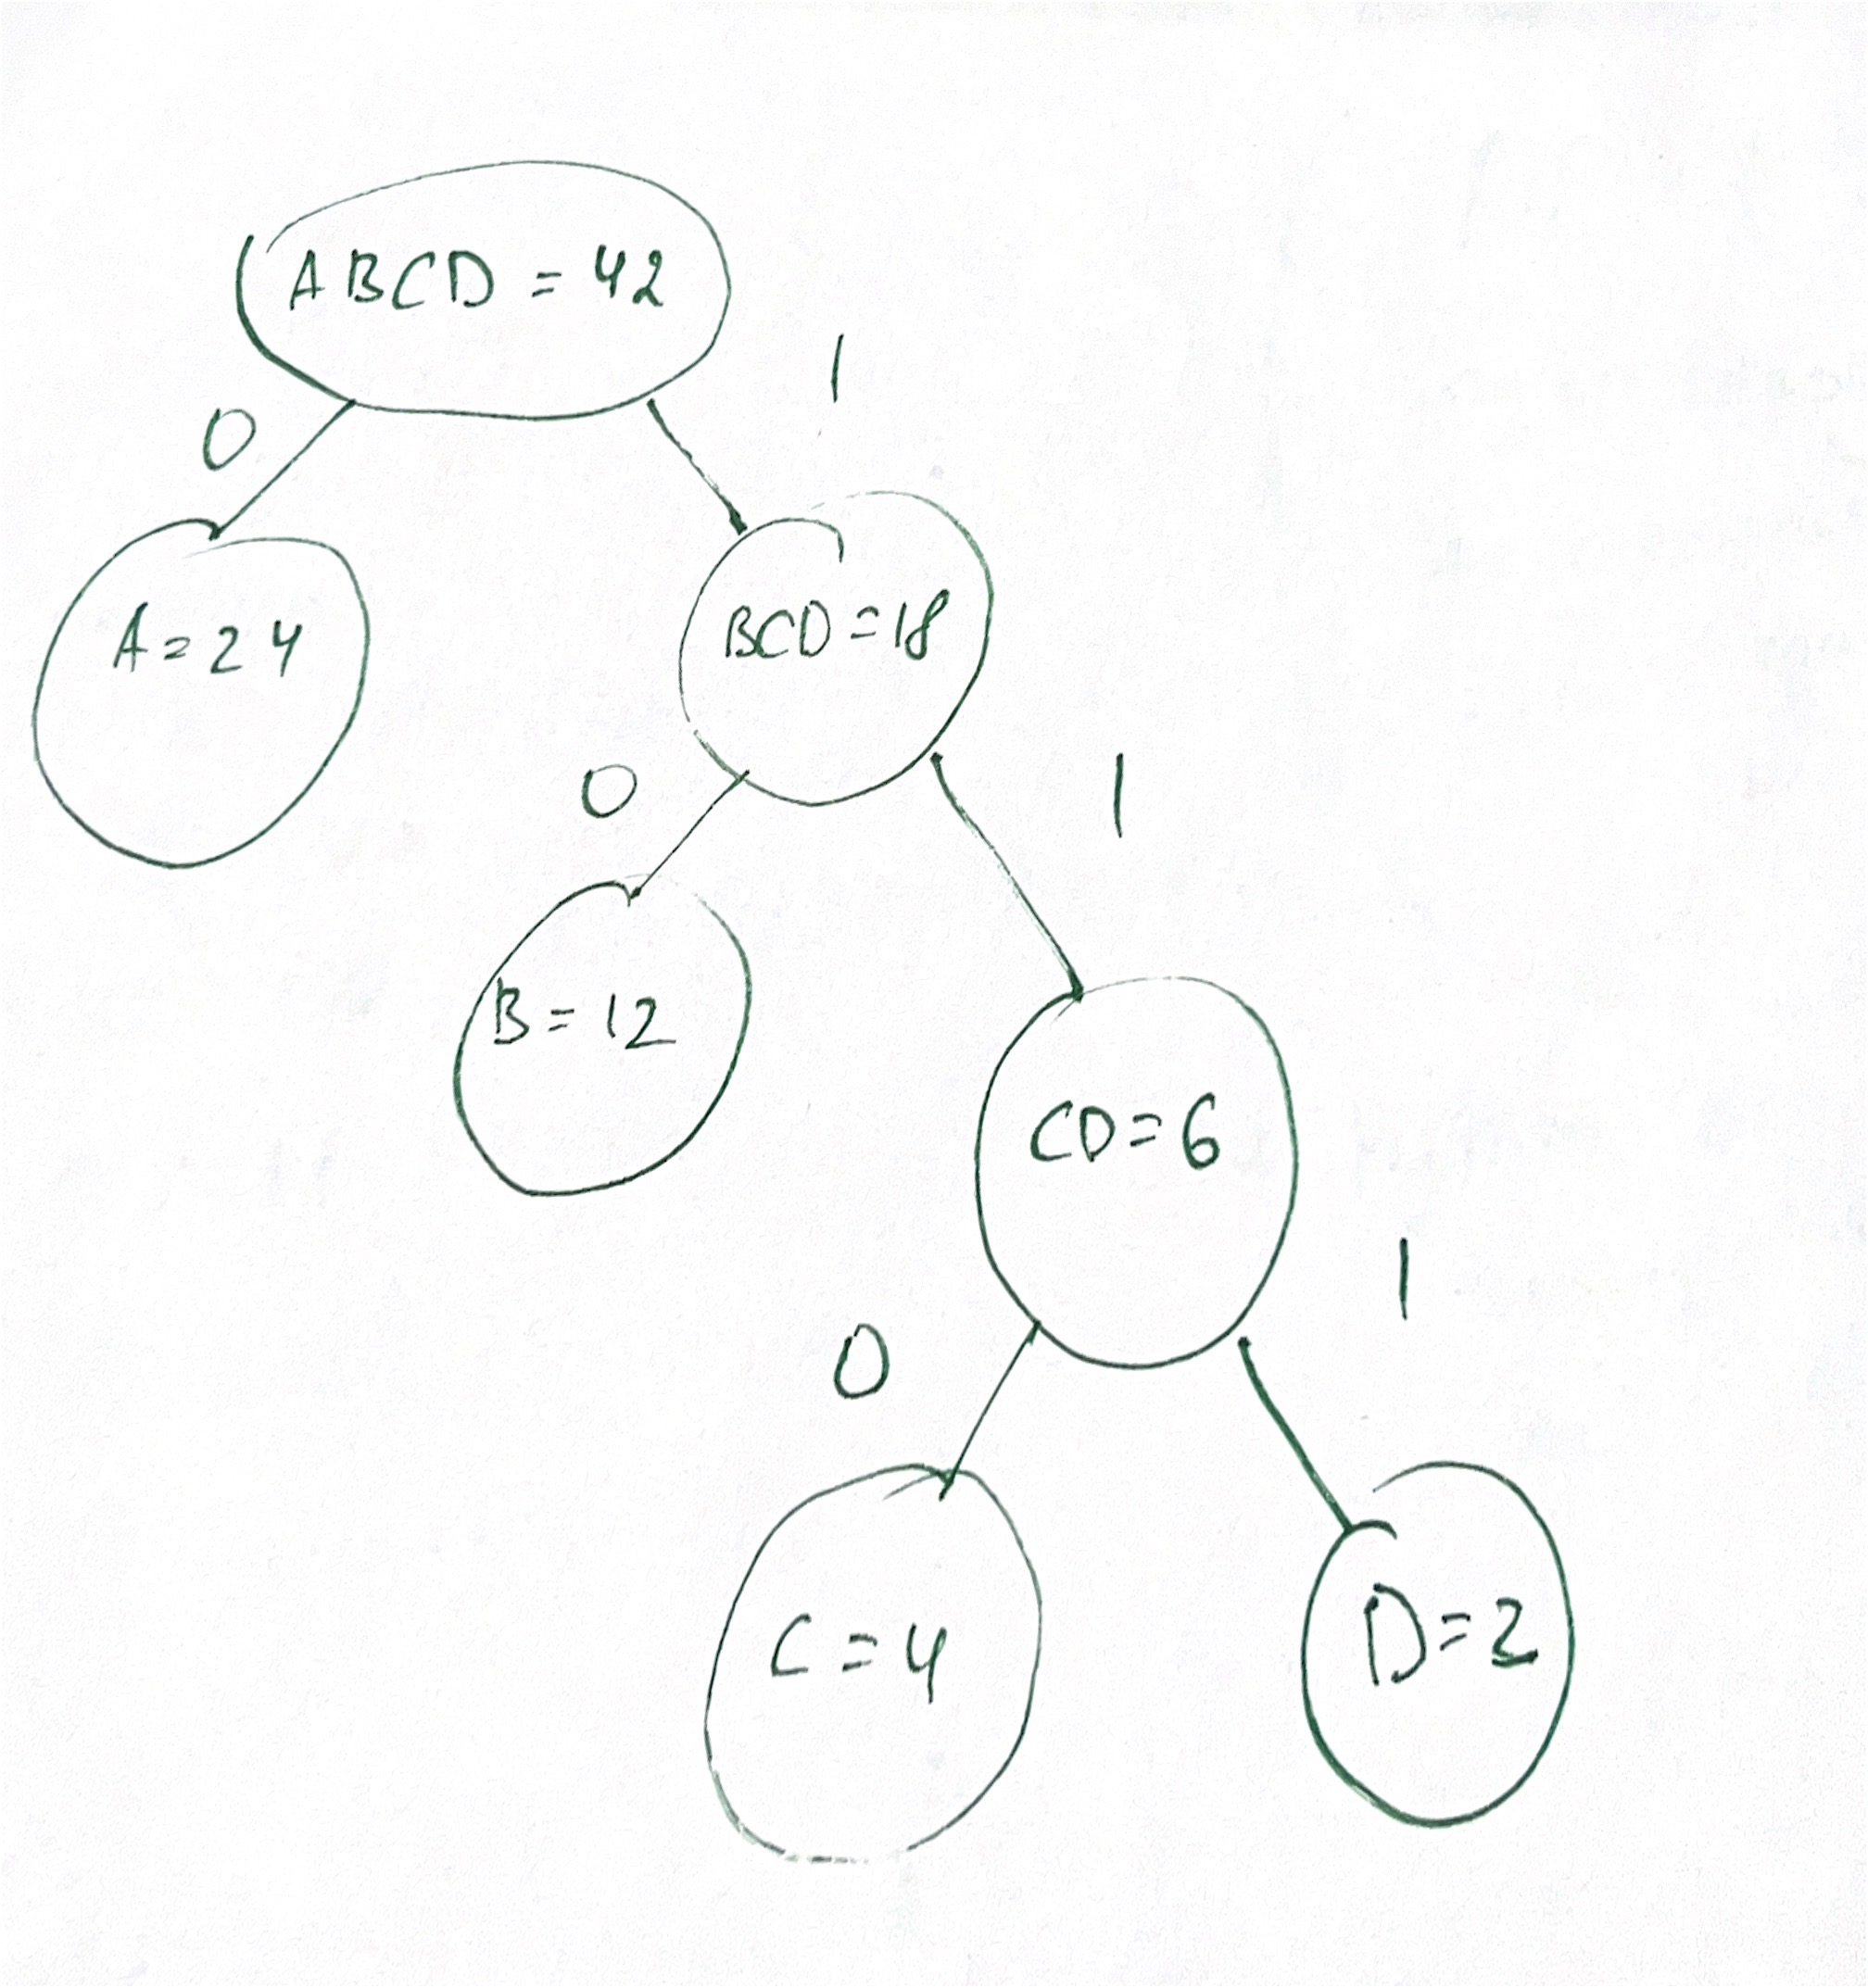 ABCD = 42
0 1
A = 24
BCD = 18
0 1
B = 12
CD = 6
0 1
C = 4
D = 2